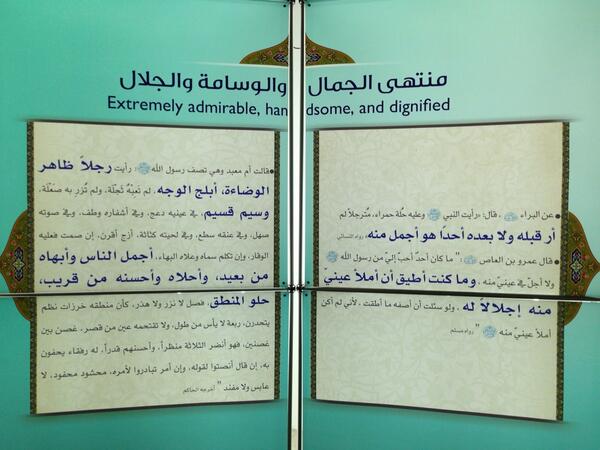 منتهى الجمال والوسامة والجلال
Extremely admirable, handsome, and dignified
عن البراء ، قال: «رأيت النبي ﷺ وعليه حُلة حمراء، مُترجلاً لم
أر قبله ولا بعده أحدًا هو أجمل منه، رواه النسائي
• قال عمرو بن العاص : " ما كان أحدٌ أحبَّ إليَّ من رسول الله ﷺ
ولا أجلّ في عينيَّ منه ، وما كنت أطيق أن أملأ عينيَّ
منه إجلالاً له ، ولو سئلت أن أصفه ما أطقت، لأني لم أكن
أملأ عينيَّ منه ﷺ " رواه مسلم
• قالت أم معبد وهي تصف رسول الله ﷺ: رأيت رجلاً ظاهر
الوضاءة، أبلج الوجه، لم تَعِبْهُ ثُجلة، ولم تُزرِ به صَعْلة،
وسيم قسيم، في عينيه دعج، وفي أشفاره وطف، وفي صوته
صهل، وفي عنقه سطع، وفي لحيته كثاثة، أزج أقرن، إن صمت فعليه
الوقار، وإن تكلم سماه وعلاه البهاء، أجمل الناس وأبهاه
من بعيد، وأحلاه وأحسنه من قريب،
حلو المنطق، فصل لا نزر ولا هذر، كأن منطقه خرزات نظم
يتحدرن، ربعة لا يأس من طول، ولا تقتحمه عين من قصر، غصن بين
غصنين، فهو أنضر الثلاثة منظراً، وأحسنهم قدراً، له رفقاء يحفون
به، إن قال أنصتوا لقوله، وإن أمر تبادروا لأمره، محشود محفود، لا
عابس ولا مفند " أخرجه الحاكم